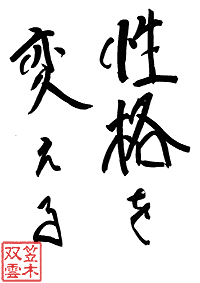 性格を
変える
笠木
双雲